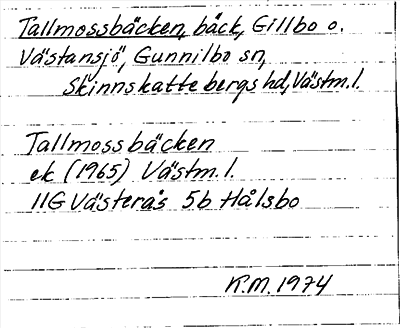 Tallmossbäcken, bäck, Gillbo o.
Västansjö, Gunnilbo sn,
Skinnskattebergs hd, Västm.l.
Tallmossbäcken
ek (1965) Västm.l.
11G Västerås 5b Hålsbo
K.M. 1974